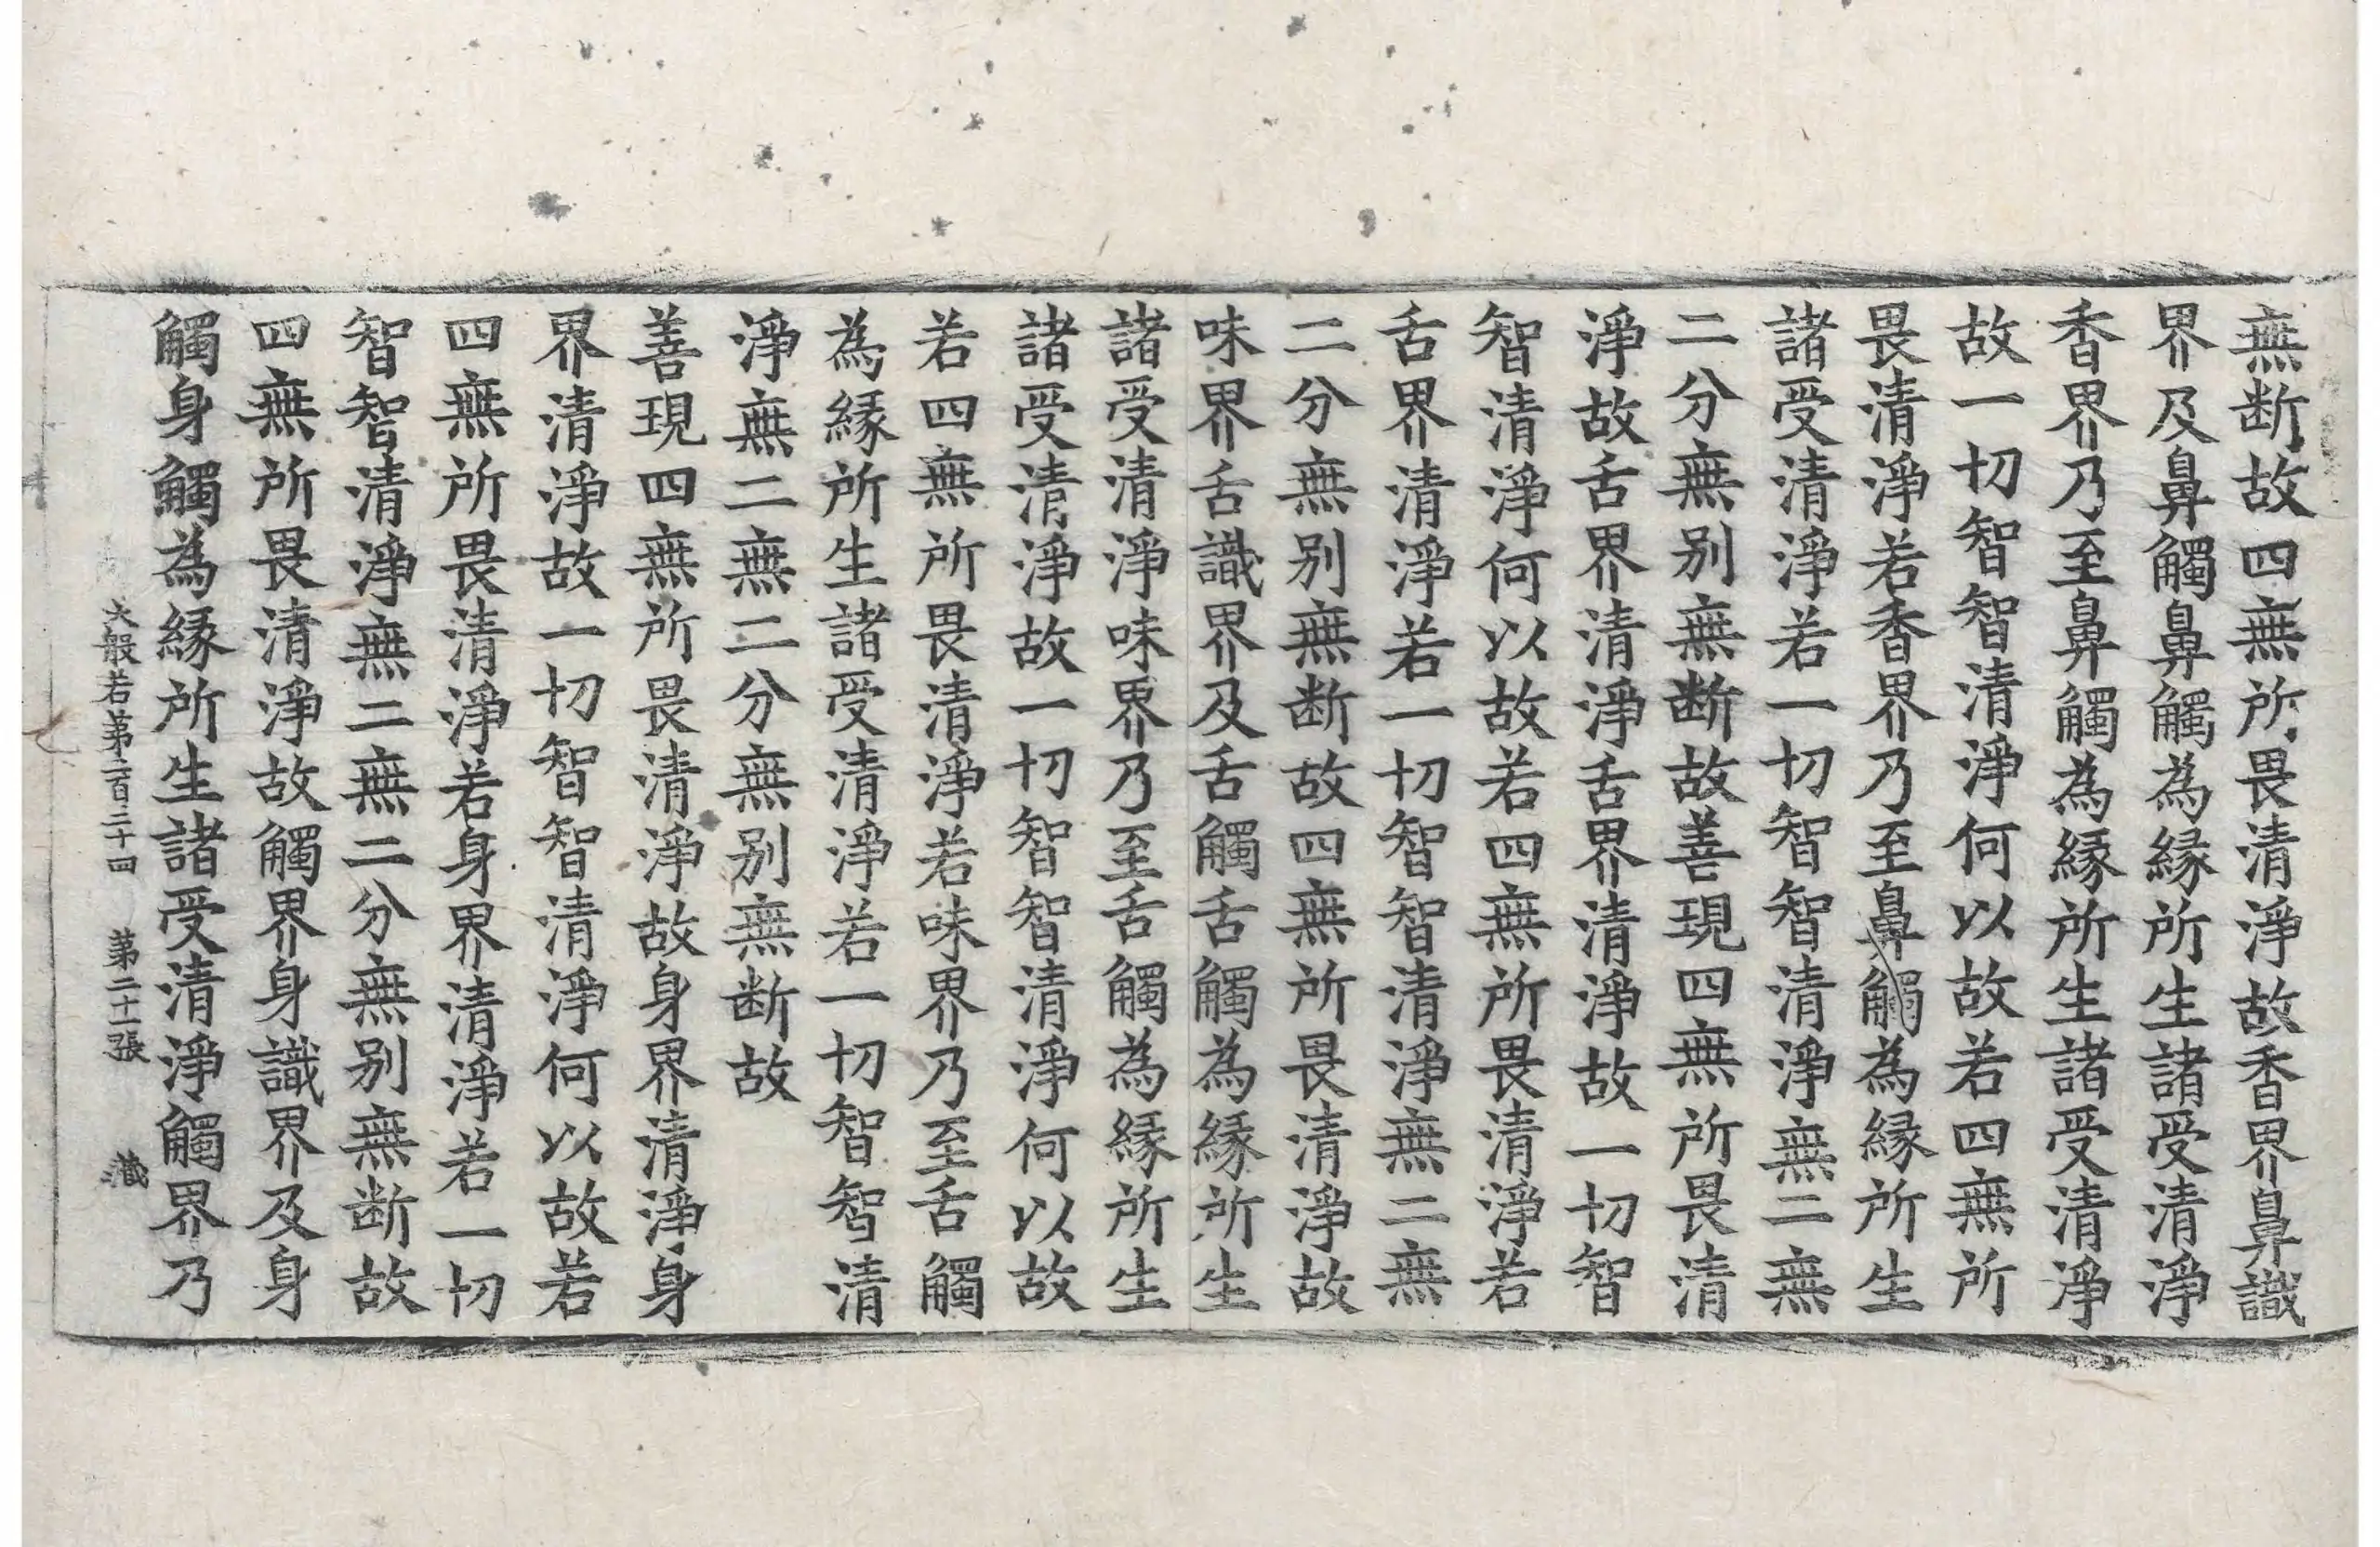 無断故四無所畏清淨故香界鼻識
界及鼻觸鼻觸為縁所生諸受清淨
香界乃至鼻觸為縁所生諸受清淨
故一切智智清淨何以故若四無所
畏清淨若香界乃至鼻觸為縁所生
諸受清淨若一切智智清淨無二無
二分無别無断故善現四無所畏清
淨故舌界清淨舌界清淨故一切智
智清淨何以故若四無所畏清淨若
舌界清淨若一切智智清淨無二無
二分無别無断故四無所畏清淨故
味界舌識界及舌觸舌觸為縁所生
諸受清淨味界乃至舌觸為縁所生
諸受清淨故一切智智清淨何以故
若四無所畏清淨若味界乃至舌觸
為縁所生諸受清淨若一切智智清
淨無二無二分無别無断故
善現四無所畏清淨故身界清淨身
界清淨故一切智智清淨何以故若
四無所畏清淨若身界清淨若一切
智智清淨無二無二分無别無断故
四無所畏清淨故觸界身識界及身
觸身觸為縁所生諸受清淨觸界乃
大般若第二百三十四 第二十一張 藏